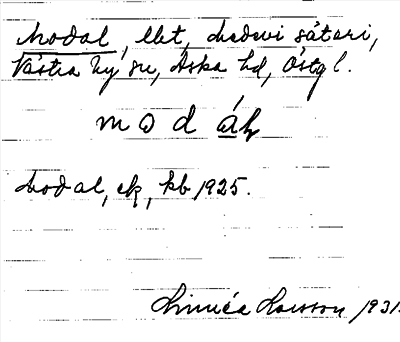 Modal, lht, Medevi säteri,
Västra Ny sn, Aska hd, Östgl.
m o d á l
Modal, ek, kb 1925.
Linnéa Larsson 1931.